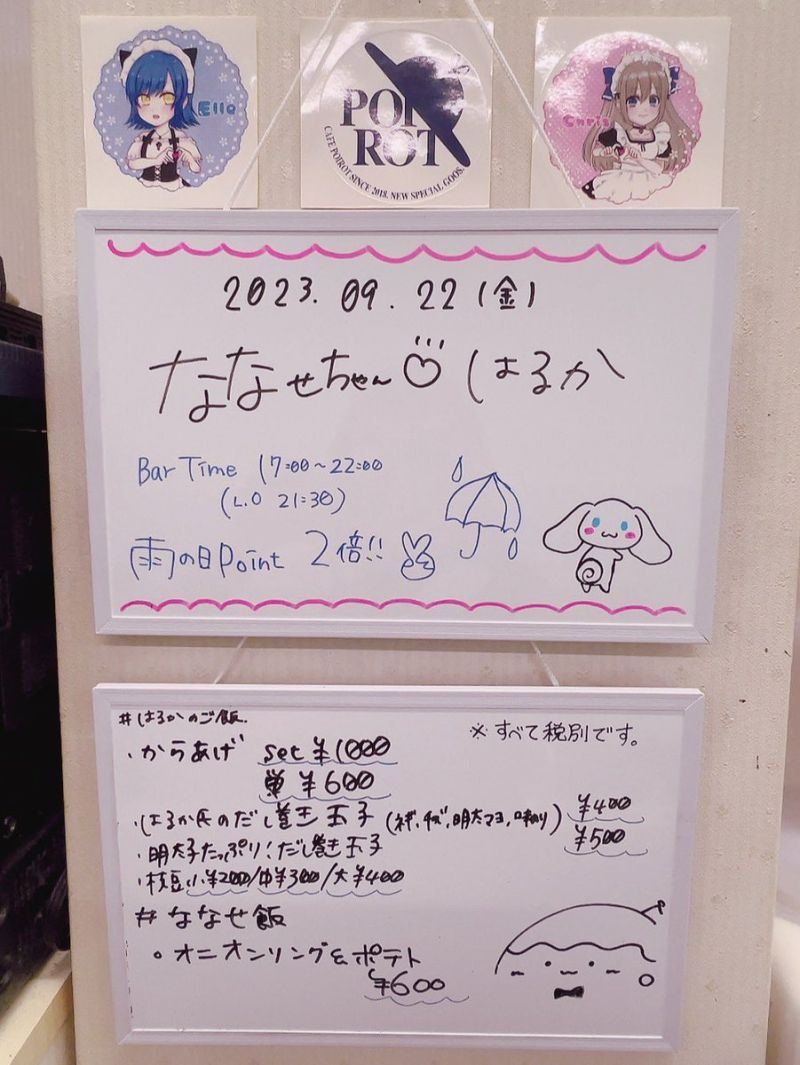 Ello
POIROT
CAFE POIROT SINCE 2018. NEW SPECIAL GOOS.
Chris
2023. 09. 22 (金)
ななせちゃん♡ はるか
Bar Time 17:00~22:00
(L.O 21:30)
雨の日Point 2倍!!
#はるかのご飯.
※すべて税別です。
・からあげ set ¥1000
単 ¥600
・はるか氏のだし巻き玉子 (ネギ,チーズ,明太マヨ,味のり) ¥400
・明太子たっぷり!だし巻き玉子 ¥500
・枝豆 小¥200/中¥300/大¥400
#ななせ飯
・オニオンリング&ポテト
¥600